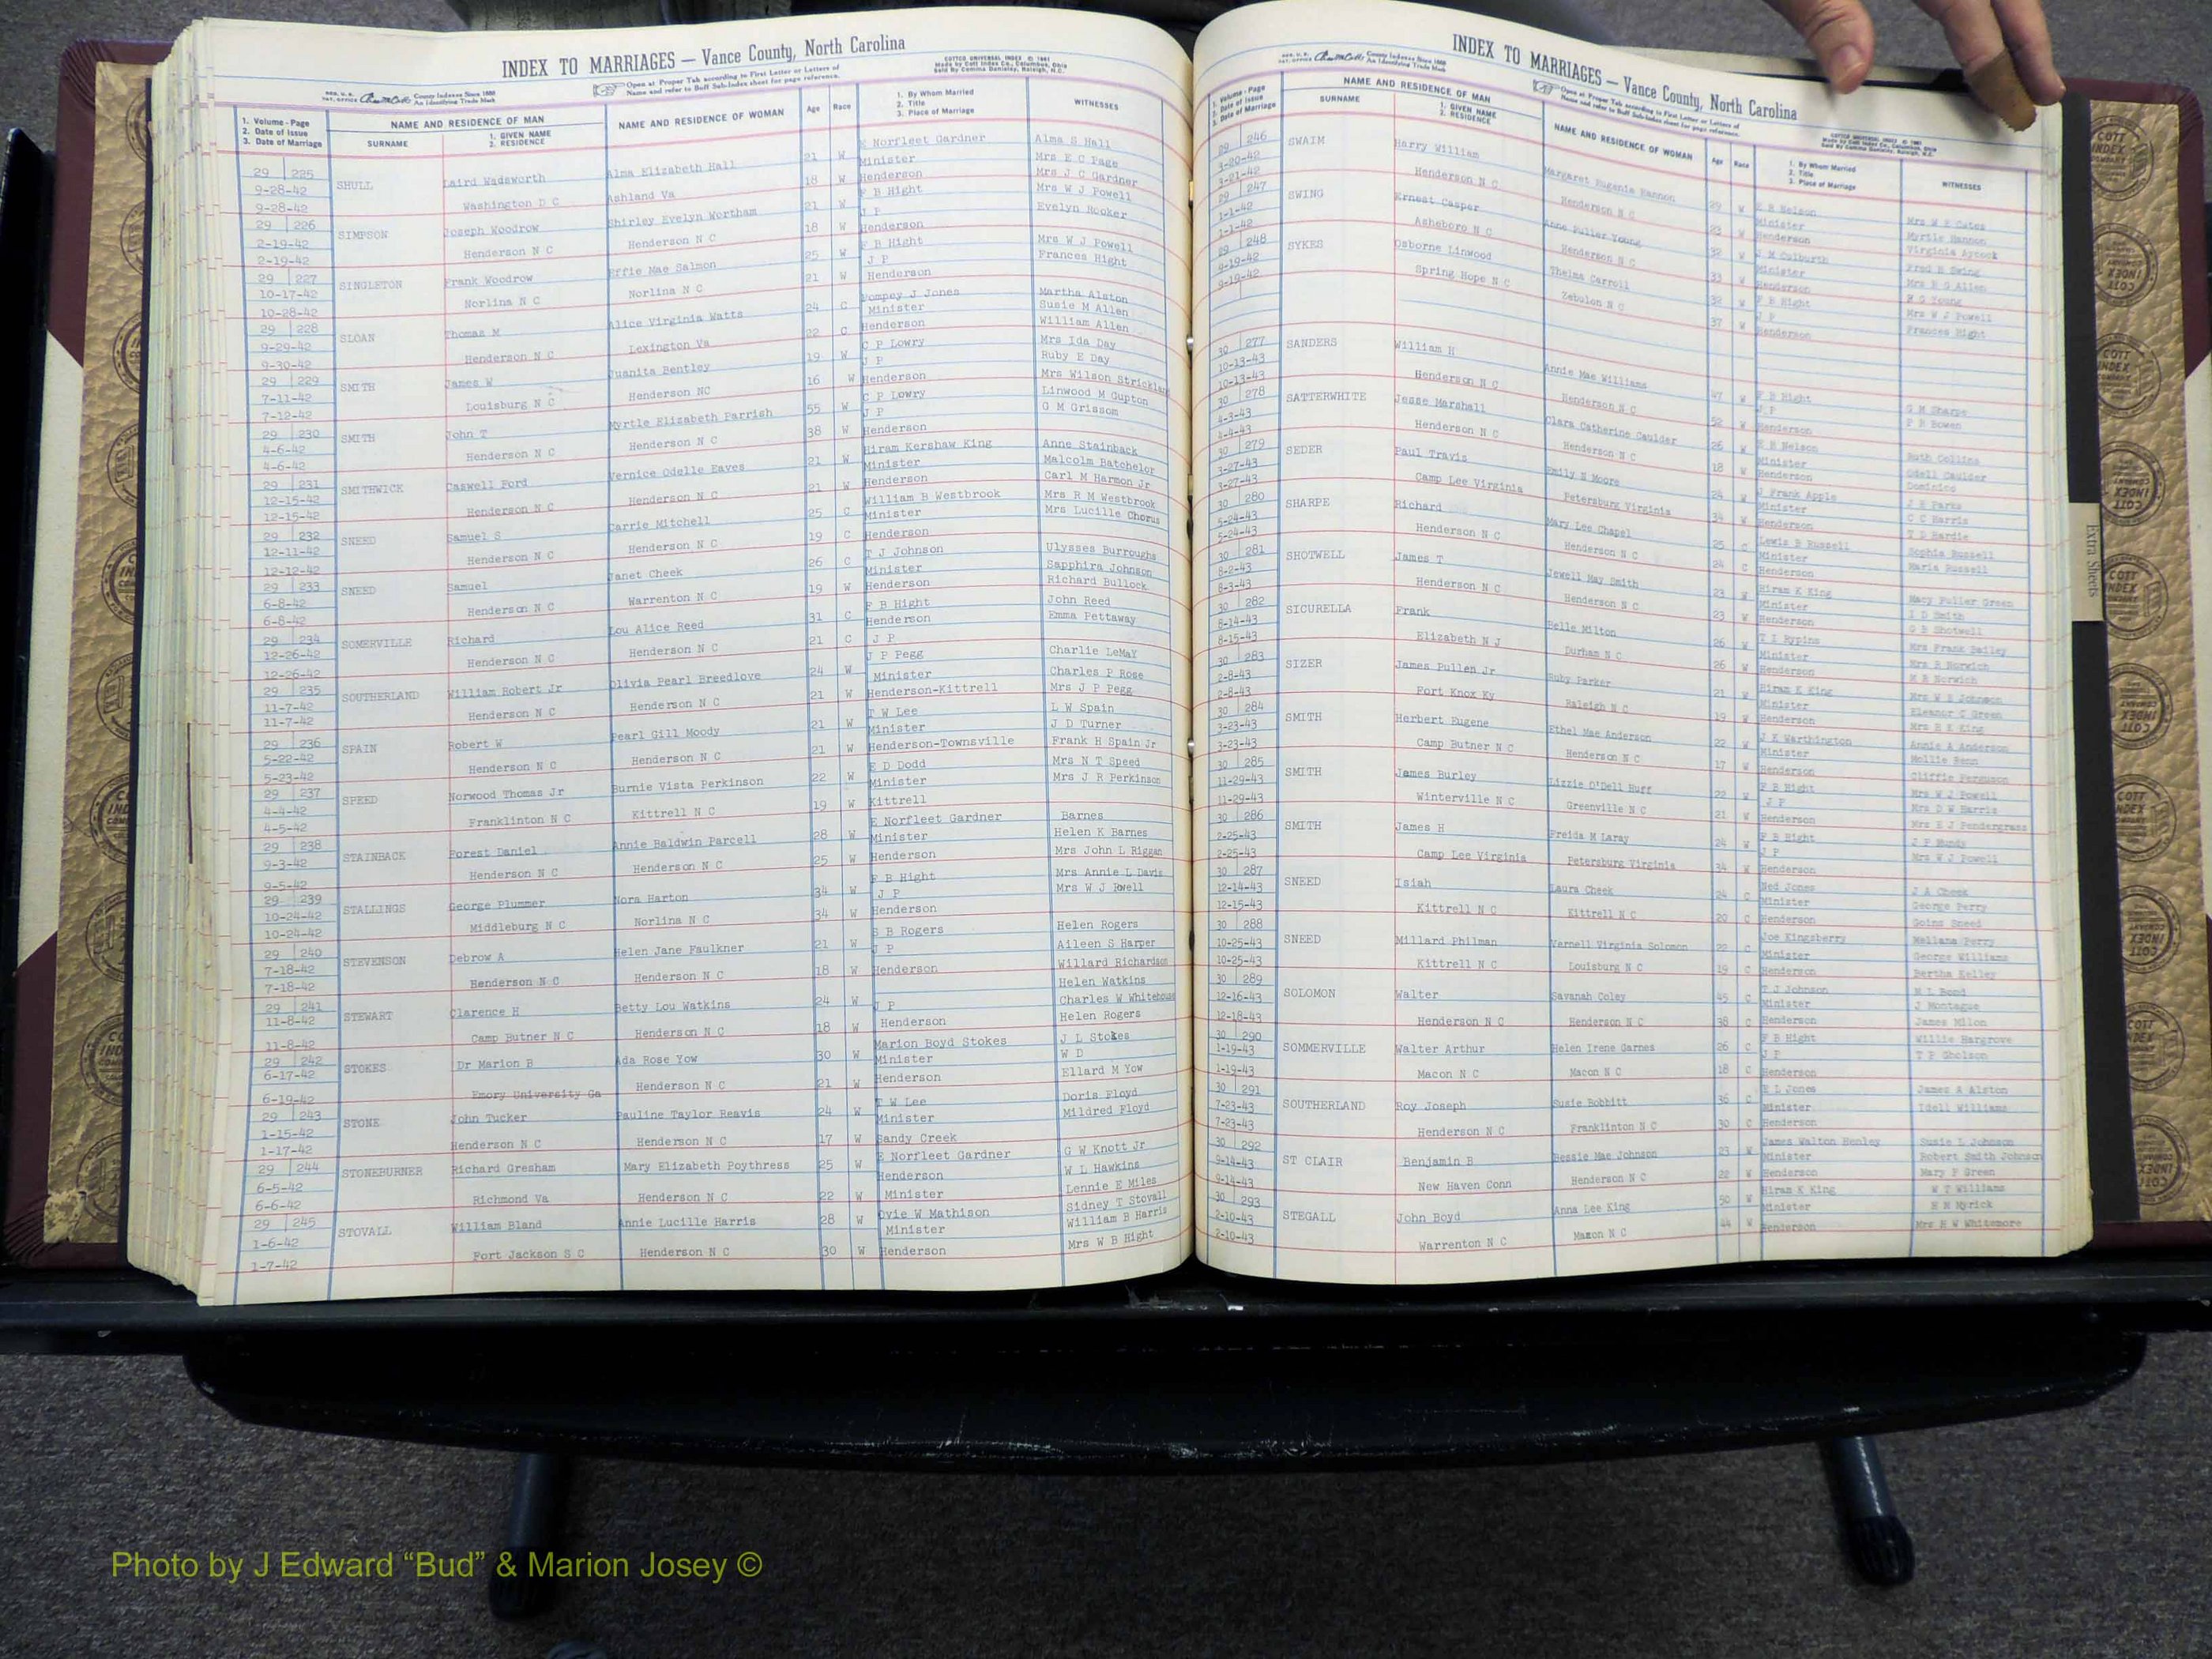 INDEX TO MARRIAGES — Vance County, North Carolina
COTT UNIVERSAL INDEX © 1961
Made by Cott Index Co., Columbus, Ohio
County Indexes Since 1888
An Identifying Trade Mark
Open at Proper Tab according to First Letter or Letters of
Name and refer to Buff Sub-Index sheet for page reference.
1. Volume - Page
2. Date of Issue
3. Date of Marriage
NAME AND RESIDENCE OF MAN
SURNAME
1. GIVEN NAME
2. RESIDENCE
NAME AND RESIDENCE OF WOMAN
Age
Race
1. By Whom Married
2. Title
3. Place of Marriage
WITNESSES
29 225 SHULL Laird Wadsworth Alma Elizabeth Hall 21 W E Norfleet Gardner Alma S Hall
9-28-42 Washington D C Ashland Va 18 W Minister Mrs E C Page
9-28-42 Henderson Mrs J C Gardner
29 226 SIMPSON Joseph Woodrow Shirley Evelyn Wortham 21 W F B Hight Mrs W J Powell
2-19-42 Henderson N C Henderson N C 18 W J P Evelyn Rooker
2-19-42 Henderson
29 227 SINGLETON Frank Woodrow Effie Mae Salmon 25 W F B Hight Mrs W J Powell
10-17-42 Norlina N C Norlina N C 21 W J P Frances Hight
10-28-42 Henderson
29 228 SLOAN Thomas M Alice Virginia Watts 24 C Pompey J Jones Martha Alston
9-29-42 Henderson N C Lexington Va 22 C Minister Susie M Allen
9-30-42 Henderson William Allen
29 229 SMITH James W Juanita Bentley 19 W C P Lowry Mrs Ida Day
7-11-42 Louisburg N C Henderson NC 16 W J P Ruby E Day
7-12-42 Henderson Mrs Wilson Strickland
29 230 SMITH John T Myrtle Elizabeth Parrish 55 W C P Lowry Linwood M Gupton
4-6-42 Henderson N C Henderson N C 38 W J P G M Grissom
4-6-42 Henderson
29 231 SMITHWICK Caswell Ford Vernice Odelle Eaves 21 W Hiram Kershaw King Anne Stainback
12-15-42 Henderson N C Henderson N C 21 W Minister Malcolm Batchelor
12-15-42 Henderson Carl M Harmon Jr
29 232 SNEED Samuel S Carrie Mitchell 25 C William B Westbrook Mrs R M Westbrook
12-11-42 Henderson N C Henderson N C 19 C Minister Mrs Lucille Chorus
12-12-42 Henderson
29 233 SNEED Samuel Janet Cheek 26 C T J Johnson Ulysses Burroughs
6-8-42 Henderson N C Warrenton N C 19 W Minister Sapphira Johnson
6-8-42 Henderson Richard Bullock
29 234 SOMERVILLE Richard Lou Alice Reed 31 C F B Hight John Reed
12-26-42 Henderson N C Henderson N C 21 C Henderson Emma Pettaway
12-26-42 J P
29 235 SOUTHERLAND William Robert Jr Olivia Pearl Breedlove 24 W J P Pegg Charlie LeMaY
11-7-42 Henderson N C Henderson N C 21 W Minister Charles P Rose
11-7-42 Henderson-Kittrell Mrs J P Pegg
29 236 SPAIN Robert W Pearl Gill Moody 21 W T W Lee L W Spain
5-22-42 Henderson N C Henderson N C 21 W Minister J D Turner
5-23-42 Henderson-Townsville Frank H Spain Jr
29 237 SPEED Norwood Thomas Jr Burnie Vista Perkinson 22 W E D Dodd Mrs N T Speed
4-4-42 Franklinton N C Kittrell N C 19 W Minister Mrs J R Perkinson
4-5-42 Kittrell
29 238 STAINBACK Forest Daniel Annie Baldwin Parcell 28 W E Norfleet Gardner Barnes
9-3-42 Henderson N C Henderson N C 25 W Minister Helen K Barnes
9-5-42 Henderson Mrs John L Riggan
29 239 STALLINGS George Plummer Nora Harton 34 W F B Hight Mrs Annie L Davis
10-24-42 Middleburg N C Norlina N C 34 W J P Mrs W J Powell
10-24-42 Henderson
29 240 STEVENSON Debrow A Helen Jane Faulkner 21 W S B Rogers Helen Rogers
7-18-42 Henderson N C Henderson N C 18 W J P Aileen S Harper
7-18-42 Henderson Willard Richardson
29 241 STEWART Clarence H Betty Lou Watkins 24 W J P Helen Watkins
11-8-42 Camp Butner N C Henderson N C 18 W Henderson Charles W Whitehouse
11-8-42 Helen Rogers
29 242 STOKES Dr Marion B Ada Rose Yow 30 W Marion Boyd Stokes J L Stokes
6-17-42 Emory University Ga Henderson N C 21 W Minister W D
6-19-42 Henderson Ellard M Yow
29 243 STONE John Tucker Pauline Taylor Reavis 24 W T W Lee Doris Floyd
1-15-42 Henderson N C Henderson N C 17 W Minister Mildred Floyd
1-17-42 Sandy Creek
29 244 STONEBURNER Richard Gresham Mary Elizabeth Poythress 25 W E Norfleet Gardner G W Knott Jr
6-5-42 Richmond Va Henderson N C 22 W Henderson W L Hawkins
6-6-42 Minister Lennie E Miles
29 245 STOVALL William Bland Annie Lucille Harris 28 W Ovie W Mathison Sidney T Stovall
1-6-42 Fort Jackson S C Henderson N C 30 W Minister William B Harris
1-7-42 Henderson Mrs W B Hight
INDEX TO MARRIAGES — Vance County, North Carolina
County Indexes Since 1888
An Identifying Trade Mark
Open at Proper Tab according to First Letter or Letters of
Name and refer to Buff Sub-Index sheet for page reference.
1. Volume - Page
2. Date of Issue
3. Date of Marriage
NAME AND RESIDENCE OF MAN
SURNAME
1. GIVEN NAME
2. RESIDENCE
NAME AND RESIDENCE OF WOMAN
Age
Race
1. By Whom Married
2. Title
3. Place of Marriage
WITNESSES
29 246 SWAIM Harry William Margaret Eugenia Hannon 29 W E R Nelson Mrs W B Cates
3-20-42 Henderson N C Henderson N C 23 W Minister Myrtle Hannon
3-21-42 Henderson Virginia Aycock
29 247 SWING Ernest Casper Anne Fuller Young 32 W J M Culburth Fred H Swing
1-1-42 Asheboro N C Henderson N C 33 W Minister Mrs E G Allen
1-1-42 Henderson H G Young
29 248 SYKES Osborne Linwood Thelma Carroll 32 W F B Hight Mrs W J Powell
9-19-42 Spring Hope N C Zebulon N C 37 W J P Frances Hight
9-19-42 Henderson
30 277 SANDERS William H Annie Mae Williams 47 W F B Hight G M Sharpe
10-13-43 Henderson N C Henderson N C 52 W J P P R Bowen
10-13-43 Henderson
30 278 SATTERWHITE Jesse Marshall Clara Catherine Caulder 26 W E R Nelson Ruth Collins
4-3-43 Henderson N C Henderson N C 18 W Minister Odell Caulder
4-4-43 Henderson Dominico
30 279 SEDER Paul Travis Emily N Moore 24 W J Frank Apple J R Parks
3-27-43 Camp Lee Virginia Petersburg Virginia 34 W Minister C C Harris
3-27-43 Henderson T D Hardie
30 280 SHARPE Richard Mary Lee Chapel 25 C Lewis B Russell Sophia Russell
5-24-43 Henderson N C Henderson N C 24 C Minister Maria Russell
5-24-43 Henderson
30 281 SHOTWELL James T Jewell May Smith 23 W Hiram K King Macy Fuller Green
8-2-43 Henderson N C Henderson N C 23 W Minister I D Smith
8-3-43 Henderson G B Shotwell
30 282 SICURELLA Frank Belle Milton 26 W T I Rypins Mrs Frank Bailey
8-14-43 Elizabeth N J Durham N C 26 W Minister Mrs R Norwich
8-15-43 Henderson M R Norwich
30 283 SIZER James Pullen Jr Ruby Parker 21 W Hiram K King Mrs W B Johnson
2-8-43 Fort Knox Ky Raleigh N C 19 W Minister Eleanor C Green
2-8-43 Henderson Mrs H K King
30 284 SMITH Herbert Eugene Ethel Mae Anderson 22 W J E Warthington Annie A Anderson
3-23-43 Camp Butner N C Henderson N C 17 W Minister Mollie Renn
3-23-43 Henderson Cliffie Ferguson
30 285 SMITH James Burley Lizzie O'Dell Huff 22 W F B Hight Mrs W J Powell
11-29-43 Winterville N C Greenville N C 21 W J P Mrs D W Harris
11-29-43 Henderson Mrs E J Pendergrass
30 286 SMITH James H Freida M Laray 24 W F B Hight J P Mundy
2-25-43 Camp Lee Virginia Petersburg Virginia 34 W J P Mrs W J Powell
2-25-43 Henderson
30 287 SNEED Isiah Laura Cheek 24 C Ned Jones J A Cheek
12-14-43 Kittrell N C Kittrell N C 20 C Minister George Perry
12-15-43 Henderson Goins Sneed
30 288 SNEED Millard Philman Varnell Virginia Solomon 22 C Joe Kingsberry Mellana Perry
10-25-43 Kittrell N C Louisburg N C 19 C Minister George Williams
10-25-43 Henderson Bertha Kelley
30 289 SOLOMON Walter Savanah Coley 45 C T J Johnson M L Bond
12-16-43 Henderson N C Henderson N C 38 C Minister J Montague
12-18-43 Henderson James Milon
30 290 SOMMERVILLE Walter Arthur Helen Irene Garnes 26 C F B Hight Willie Hargrove
1-19-43 Macon N C Macon N C 18 C J P T P Gholson
1-19-43 Henderson
30 291 SOUTHERLAND Roy Joseph Susie Bobbitt 36 C E L Jones James A Alston
7-23-43 Henderson N C Franklinton N C 30 C Minister Idell Williams
7-23-43 Henderson
30 292 ST CLAIR Benjamin B Bessie Mae Johnson 23 W James Walton Henley Susie L Johnson
9-14-43 New Haven Conn Henderson N C 22 W Minister Robert Smith Johnson
9-14-43 Henderson Mary P Green
30 293 STEGALL John Boyd Anna Lee King 50 W Hiram K King W T Williams
2-10-43 Warrenton N C Macon N C 44 W Minister E N Myrick
2-10-43 Henderson Mrs H W Whitemore
Extra Sheets
COTT
INDEX
COMPANY
Photo by J Edward “Bud” & Marion Josey ©